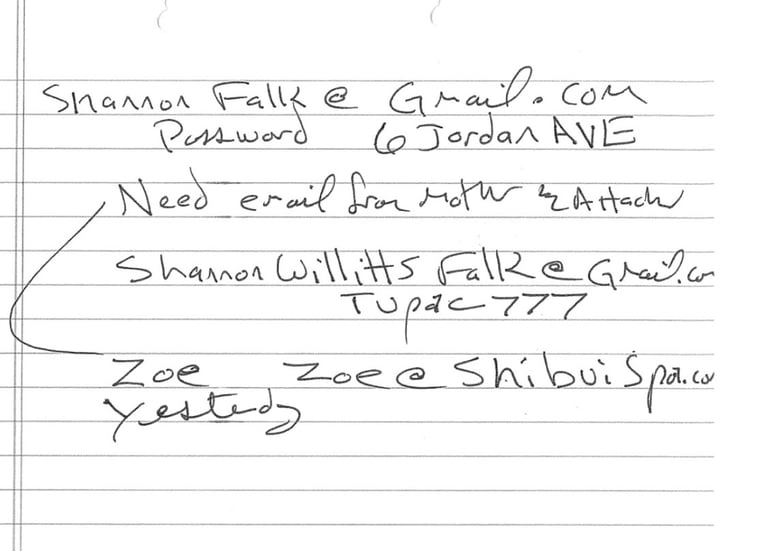 Shannon Falk @ Gmail.com
Password 6 Jordan AVE
Need email from Moth & Attach
Shannon Willitts Falk @ Gmail.co
Tupac 777
Zoe Zoe @ Shibui Spa.co
Yesterdy